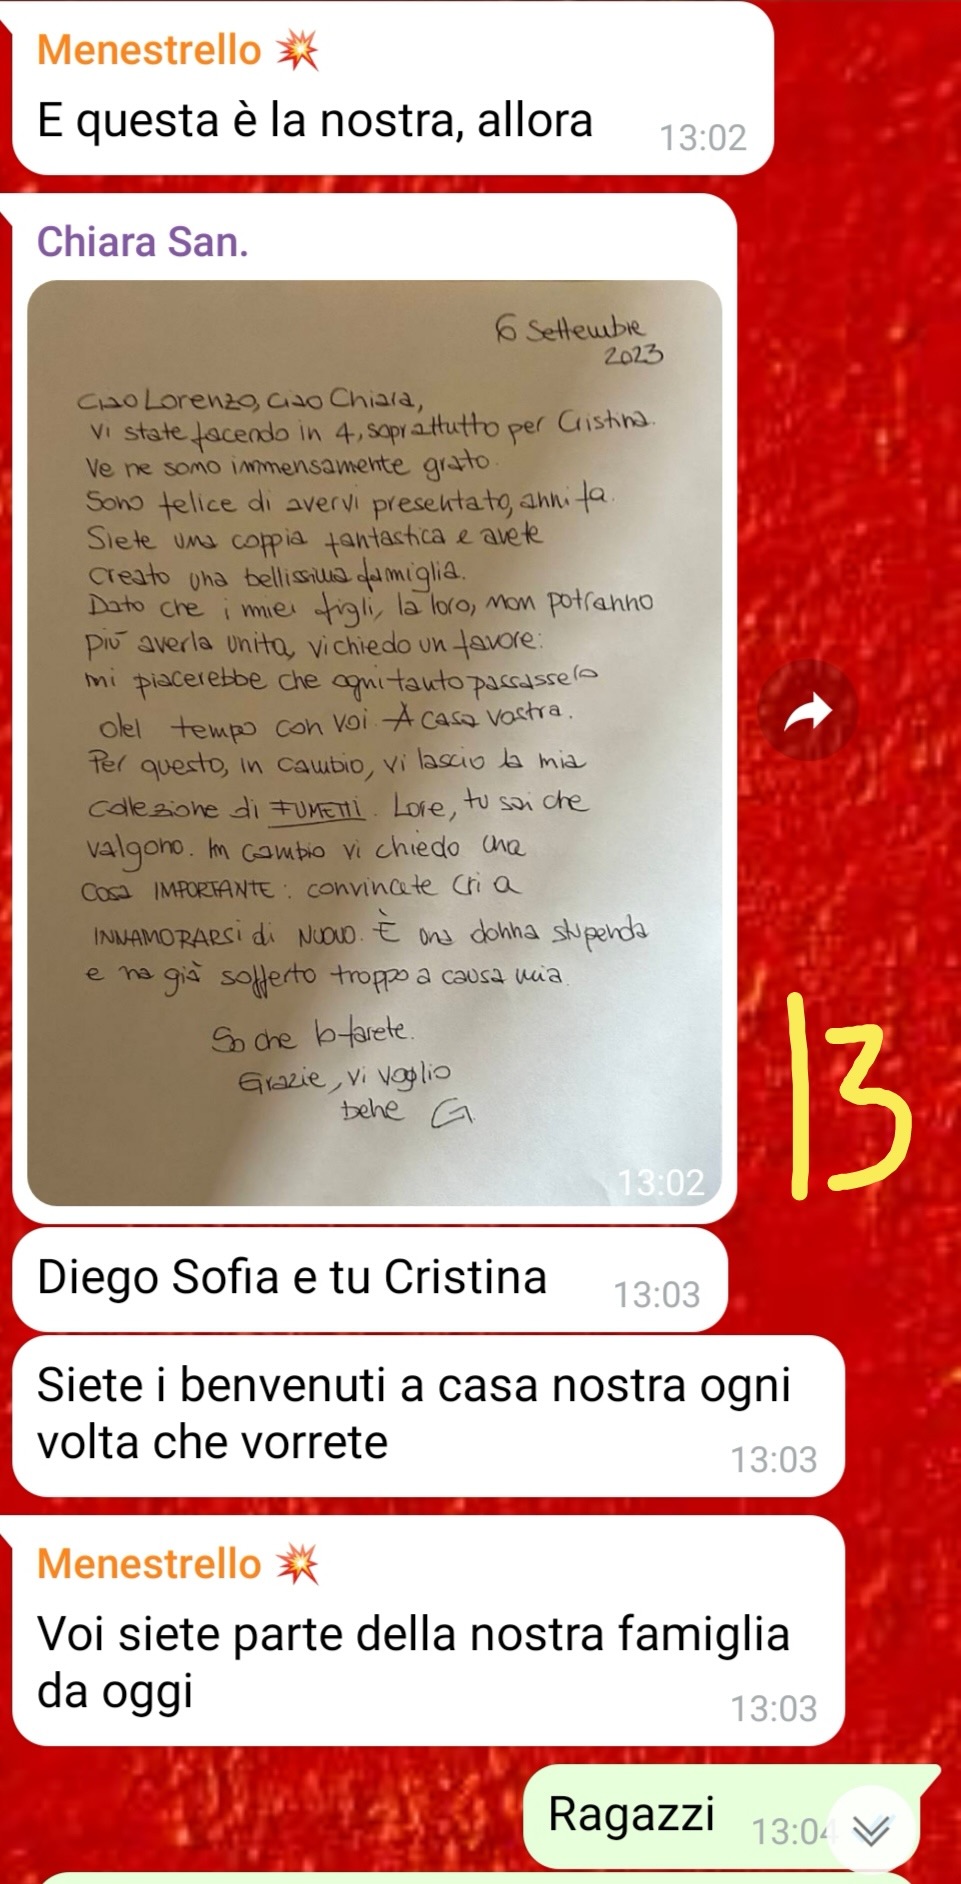 Menestrello 💥
E questa è la nostra, allora 13:02
Chiara San.
6 Settembre
2023
Ciao Lorenzo, ciao Chiara,
vi state facendo in 4, soprattutto per Cristina.
Ve ne sono immensamente grato.
Sono felice di avervi presentato, anni fa.
Siete una coppia fantastica e avete
creato una bellissima famiglia.
Dato che i miei figli, la loro, non potranno
più averla unita, vi chiedo un favore:
mi piacerebbe che ogni tanto passassero
del tempo con voi. A casa vostra.
Per questo, in cambio, vi lascio la mia
collezione di FUMETTI. Lore, tu sai che
valgono. In cambio vi chiedo una
cosa IMPORTANTE: convincete Cri a
INNAMORARSI di NUOVO. È una donna stupenda
e ha già sofferto troppo a causa mia.
So che lo farete.
Grazie, vi voglio
bene G.
13:02
13
Diego Sofia e tu Cristina 13:03
Siete i benvenuti a casa nostra ogni
volta che vorrete 13:03
Menestrello 💥
Voi siete parte della nostra famiglia
da oggi 13:03
Ragazzi 13:04